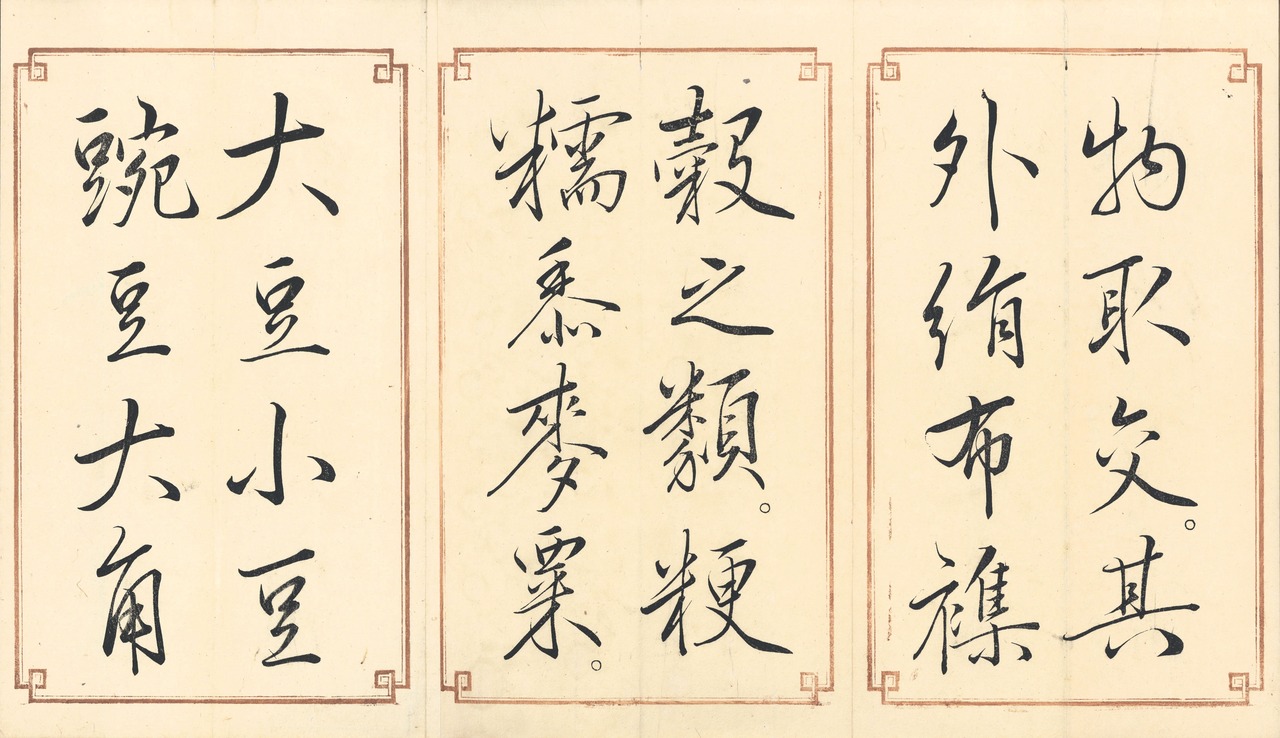 物取交。其
外絹布襍
穀之類。粳
糯黍麥粟。
大豆小豆
豌豆大角